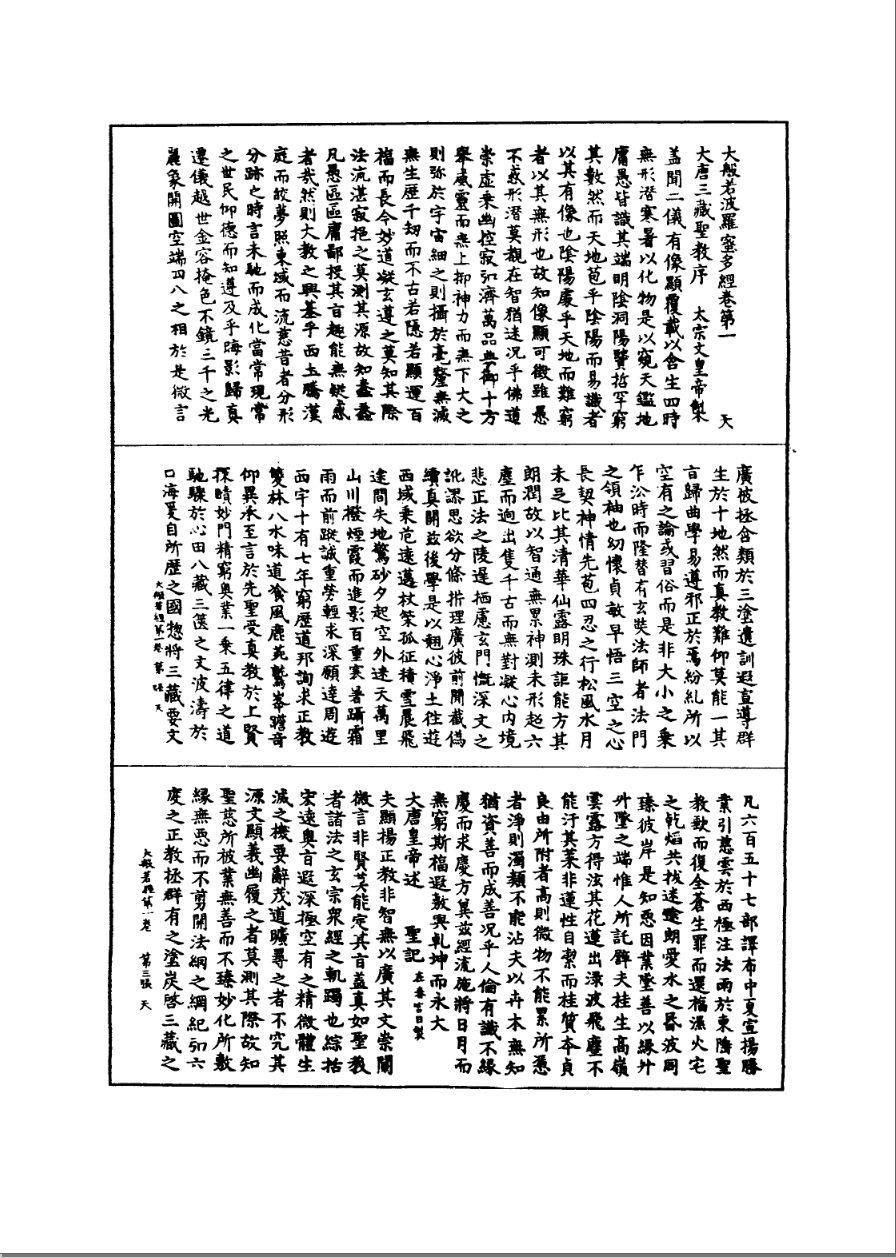 大般若波羅蜜多經卷第一 天
大唐三藏聖教序 太宗文皇帝製
蓋聞二儀有像顯覆載以含生四時
無形潜寒暑以化物是以窺天鑑地
庸愚皆識其端明陰洞陽賢哲罕窮
其數然而天地苞乎陰陽而易識者
以其有像也陰陽處乎天地而難窮
者以其無形也故知像顯可徵雖愚
不惑形潜莫覩在智猶迷况乎佛道
崇虛乘幽控寂弘濟萬品典御十方
舉威靈而無上抑神力而無下大之
則弥於宇宙細之則攝於毫釐無滅
無生歷千劫而不古若隱若顯運百
福而長今妙道凝玄導之莫知其際
法流湛寂挹之莫測其源故知蠢蠢
凡愚區區庸鄙投其旨趣能無疑惑
者哉然則大教之興基乎西土騰漢
庭而皎夢照東域而流慈昔者分形
分跡之時言未馳而成化當常現常
之世民仰德而知遵及乎晦影歸真
遷儀越世金容掩色不鏡三千之光
麗象開圖空端四八之相於是微言
廣被拯含類於三塗遺訓遐宣導群
生於十地然而真教難仰莫能一其
旨歸曲學易遵邪正於焉紛紏所以
空有之論或習俗而是非大小之乘
乍沿時而隆替有玄奘法師者法門
之領袖也幼懷貞敏早悟三空之心
長契神情先苞四忍之行松風水月
未足比其清華仙露明珠詎能方其
朗潤故以智通無累神測未形超六
塵而逈出隻千古而無對凝心内境
悲正法之陵遲栖慮玄門慨深文之
訛謬思欲分條析理廣彼前聞截僞
續真開兹後學是以翹心淨土往遊
西域乘危遠邁杖策孤征積雪晨飛
途間失地驚砂夕起空外迷天萬里
山川撥煙霞而進影百重寒暑躡霜
雨而前蹤誠重勞輕求深願達周遊
西宇十有七年窮歷道邦詢求正教
雙林八水味道飡風鹿苑鷲峯瞻奇
仰異承至言於先聖受真教於上賢
探賾妙門精窮奥業一乘五律之道
馳驟於心田八藏三篋之文波濤於
口海爰自所歷之國惣將三藏要文
大般若經第一卷 第 張 天
凡六百五十七部譯布中夏宣揚勝
業引慈雲於西極注法雨於東陲聖
教缺而復全蒼生罪而還福濕火宅
之乾焰共拔迷途朗愛水之昏波同
臻彼岸是知惡因業墜善以緣升
升墜之端惟人所託譬夫桂生高嶺
雲露方得泫其花蓮出渌波飛塵不
能汙其葉非蓮性自潔而桂質本貞
良由所附者高則微物不能累所憑
者淨則濁類不能沾夫以卉木無知
猶資善而成善况乎人倫有識不緣
慶而求慶方冀兹經流施將日月而
無窮斯福遐敷與乹坤而永大
大唐皇帝述 聖記 在春宫日製
夫顯揚正教非智無以廣其文崇闡
微言非賢莫能定其旨蓋真如聖教
者諸法之玄宗衆經之軌躅也綜括
宏遠奥旨遐深極空有之精微體生
滅之機要辭茂道曠尋之者不究其
源文顯義幽履之者莫測其際故知
聖慈所被業無善而不臻妙化所敷
緣無惡而不剪開法網之綱紀弘六
度之正教拯群有之塗炭啓三藏之
大般若經第一卷 第三張 天